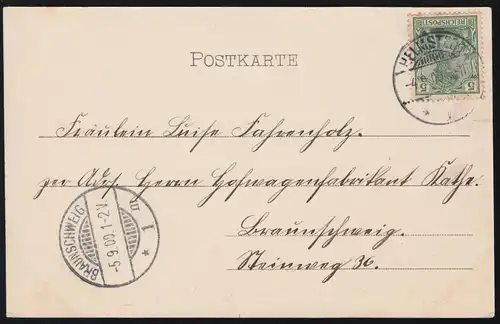 REICHSPOST
5 5
HELMSTEDT
POSTKARTE
Fräulein Luise Fahrenholz.
per Adr. Herrn Hofwagenfabrikant Kathe.
Braunschweig.
Steinweg 36.
BRAUNSCHWEIG
-5.9.00.1-2V.
1